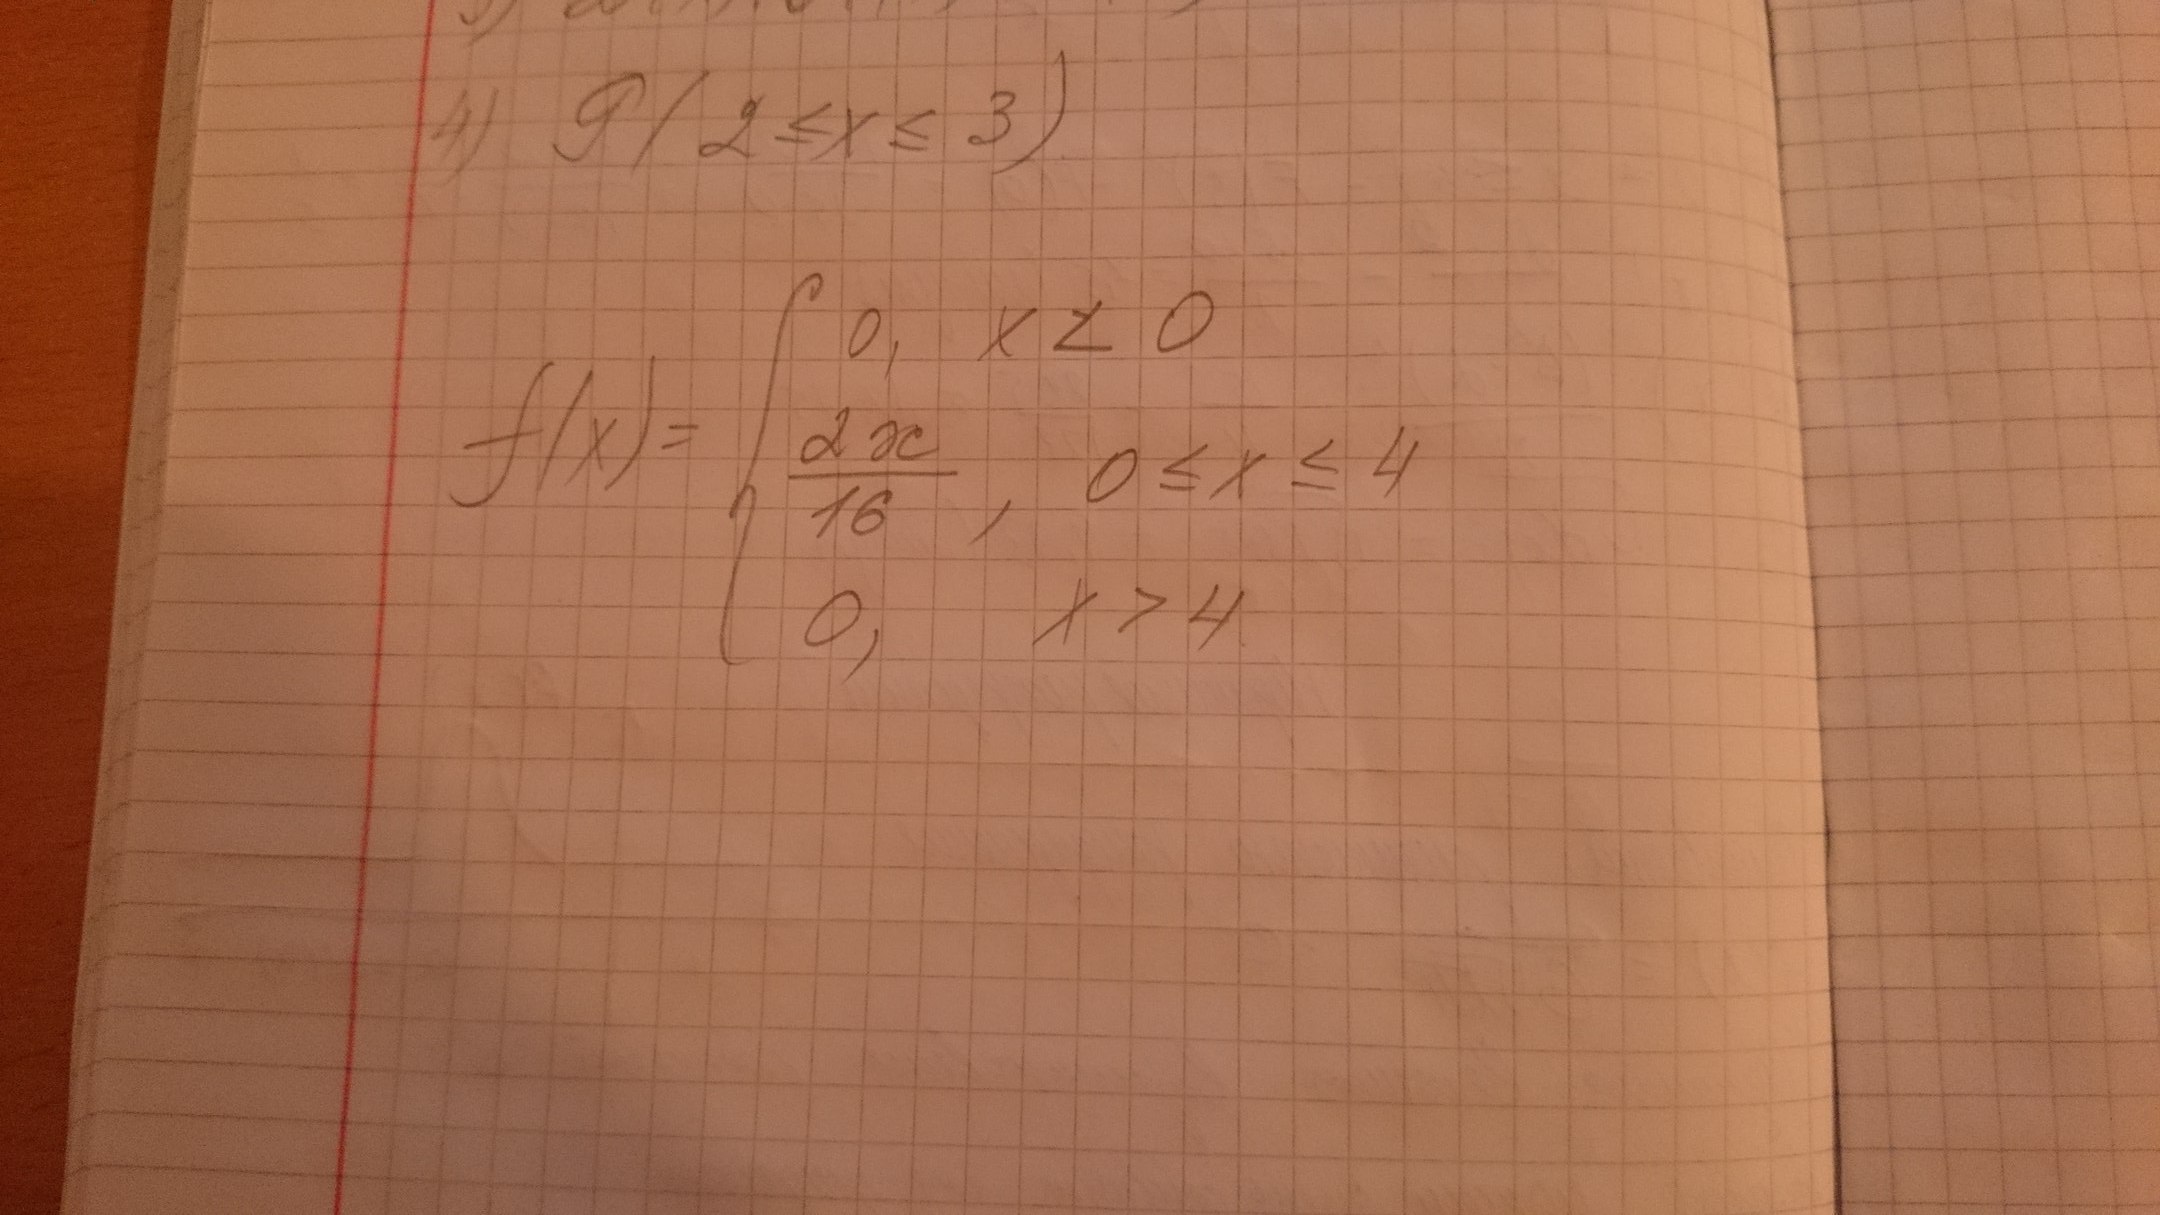 4) P(2 ≤ x ≤ 3)
f(x) = { 0, x < 0
2x/16, 0 ≤ x ≤ 4
0, x > 4